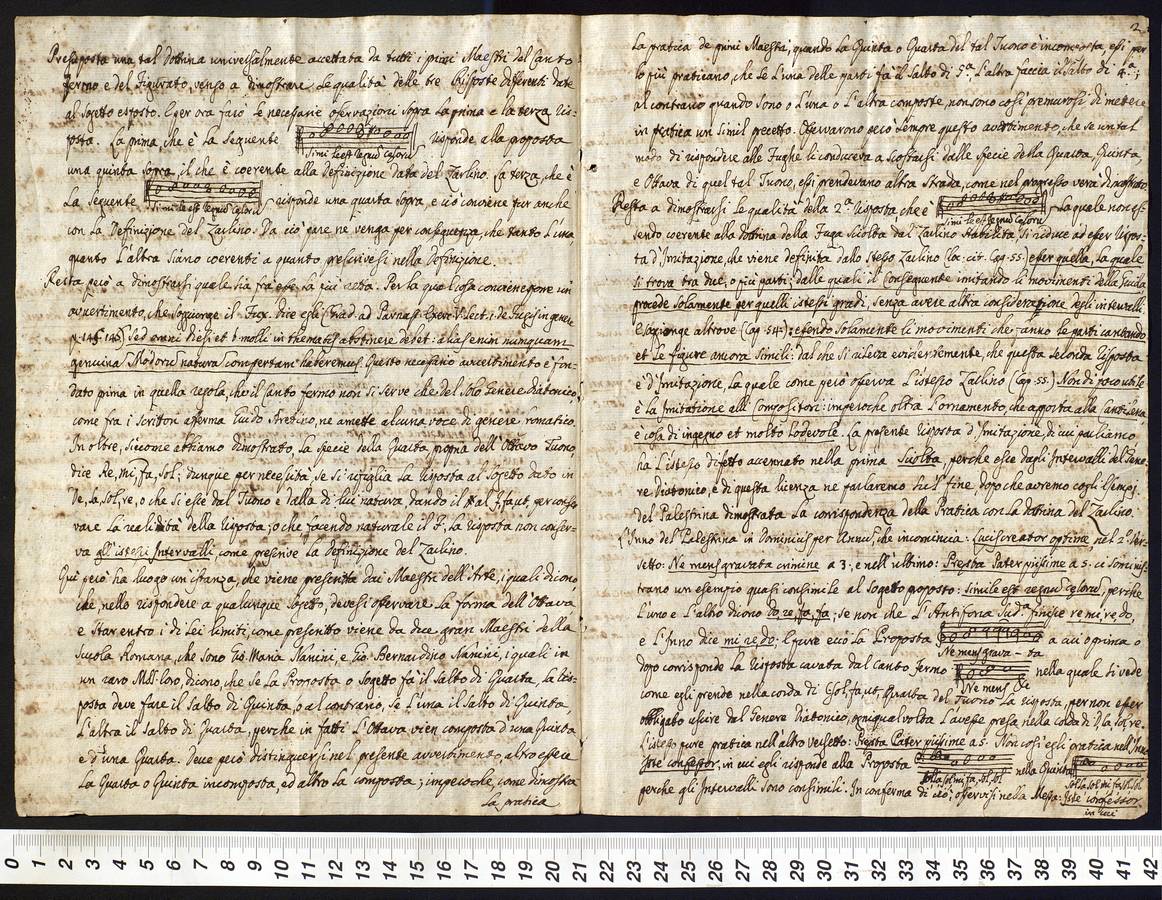 Presuposta una tal dottrina universalmente accettata da tutti i primi Maestri del Canto
fermo e del Figurato, vengo a dimostrare le qualità delle tre Risposte differenti date
al Sogetto esposto. E per ora farò le necessarie osservazioni sopra la prima e la terza Ris-
posta. La prima, che è la seguente
Simile est Regnum Celorum
risponde alla proposta
una quinta sopra, il che è coerente alla Definizione data del Zarlino. La terza, che è
la seguente
Simile est Regnum Celorum
risponde una quarta sopra, e ciò conviene pur anche
con la Definizione del Zarlino. Da ciò pare ne venga per conseguenza, che tanto l'una,
quanto l'altra siano coerenti a quanto prescrivesi nella Definizione.
Resta però a dimostrarsi quale sia fra esse la più retta. Per la qual cosa conviene porre un
avvertimento, che soggiunge il Fux. Dice egli (Grad. ad Parnass. Exerc. V. Lect. 1. de Fugis in genere
p. 143) Sed enim diesi et b molli in thematis abstinere debet: alias enim nunquam
genuina Modorum natura compertam haberemus. Questo necessario avvertimento è fon-
dato prima in quella regola, che il Canto fermo non si serve che del solo Genere diatonico,
come fra i Scrittori afferma Guido Aretino, ne amette alcuna voce di genere cromatico.
In oltre, siccome abbiamo dimostrato, la specie della Quarta propria dell'Ottavo Tuono
dice Re, mi, fa, sol; dunque per necessità, se si ripiglia la Risposta al Sogetto dato in
De, la, sol, re, o che si esce dal Tuono e dalla di lui natura dando il # al F, fa ut, per conser-
vare la realità della Risposta; o che facendo naturale il F, la Risposta non conser-
va gl'istessi Intervalli, come prescrive la Definizione del Zarlino.
Qui però ha luogo un'istanza, che viene presentata dai Maestri dell'Arte, i quali dicono
che nello rispondere a qualunque Sogetto, devesi osservare la forma dell'Ottava
e star entro i di lei limiti, come prescritto viene da due gran Maestri della
Scuola Romana, che sono Gio. Maria Nanini, e Gio. Bernardino Nanini, i quali in
un raro MS. loro, dicono, che se la Proposta o Sogetto fa il Salto di Quarta, la Ris-
posta deve fare il Salto di Quinta, o al contrario, se l'una il Salto di Quinta,
l'altra il Salto di Quarta, perche in fatti l'Ottava vien composta d'una Quinta
e d'una Quarta. Deve però distinguersi nel presente avvertimento, altro essere
la Quarta o Quinta incomposta, ed altro la composta; imperocche, come dimostra
la pratica
2.
la pratica de primi Maestri, quando la Quinta o Quarta del tal Tuono è incomposta, essi per
lo più praticano, che se l'una delle parti fa il Salto di 5.a l'altra faccia il Salto di 4.a;
al contrario quando sono o l'una o l'altra composte, non sono così premurosi di mettere
in pratica un simil precetto. Osservarono però sempre questo avvertimento, che se un tal
modo di rispondere alle Fughe li conduceva a scostarsi dalle specie della Quarta, Quinta,
e Ottava di quel tal Tuono, essi prendevano altra strada, come nel progresso verrà dimostrato.
Resta a dimostrarsi le qualità della 2.a Risposta che è
Simile est Regnum Celorum
la quale non es-
sendo coerente alla dottrina della Fuga Sciolta dal Zarlino stabilita, si riduce ad esser Rispos-
ta d'Imitazione, che viene definita dallo stesso Zarlino (loc. cit. Cap. 55.) esser quella, la quale
si trova tra due, o più parti; dalle quali il Conseguente imitando li movimenti della Guida
procede solamente per quelli istessi gradi, senza avere altra considerazione degli intervalli.
E soggionge altrove (Cap. 54.): essendo solamente li movimenti che fanno le parti cantando
et le figure ancora simili: dal che si rileva evidentemente, che questa seconda Risposta
è d'Imitazione, la quale come però osserva l'istesso Zarlino (Cap. 55.) Non di poco utile
è la Imitatione alli Compositori: imperoche oltra l'ornamento, che apporta alla cantilena,
è cosa di ingegno et molto lodevole. La presente Risposta d'Imitazione, di cui parliamo,
ha l'istesso difetto accennato nella prima Sciolta, perche esce dagli Intervalli del Gene-
re Diatonico, e di questa licenza ne parlaremo sul fine, dopo che avremo cogli Esempj
del Palestrina dimostrata la corrispondenza della Pratica con la dottrina del Zarlino.
L'Inno del Palestrina in Dominicis per Annum, che incomincia: Lucis creator optime, nel 2.° Ver-
setto: Ne mens gravata crimine a 3., e nell'ultimo: Presta Pater piissime a 5. ci somminis-
trano un esempio quasi consimile al Sogetto proposto: Simile est regnum Celorum, perche
l'uno e l'altro dicono do, re, fa, fa; se non che l'Antifona sud.a finisce re mi, re, do,
e l'Inno dice mi, re, do; eppure ecco la Proposta
Ne mens grava - ta
a cui o prima o
dopo corrisponde la Risposta cavata dal Canto fermo
Ne mens &c
nella quale si vede
come egli prende nella corda di G sol fa ut, Quarta del Tuono la Risposta, per non esser
obbligato uscire dal Genere Diatonico, ogniqualvolta l'avesse presa nella corda di D la, sol, re.
L'istesso pure pratica nell'altro versetto: Presta Pater piissime a 5. Non così egli pratica nell'Inno
Iste confessor, in cui egli risponde alla Proposta
Sol la sol mi fa, sol, sol
nella Quinta
Sol la sol mi fa sol sol
perche gli Intervalli sono consimili. In conferma di ciò, osservisi nella Messa: Iste confessor.
in cui